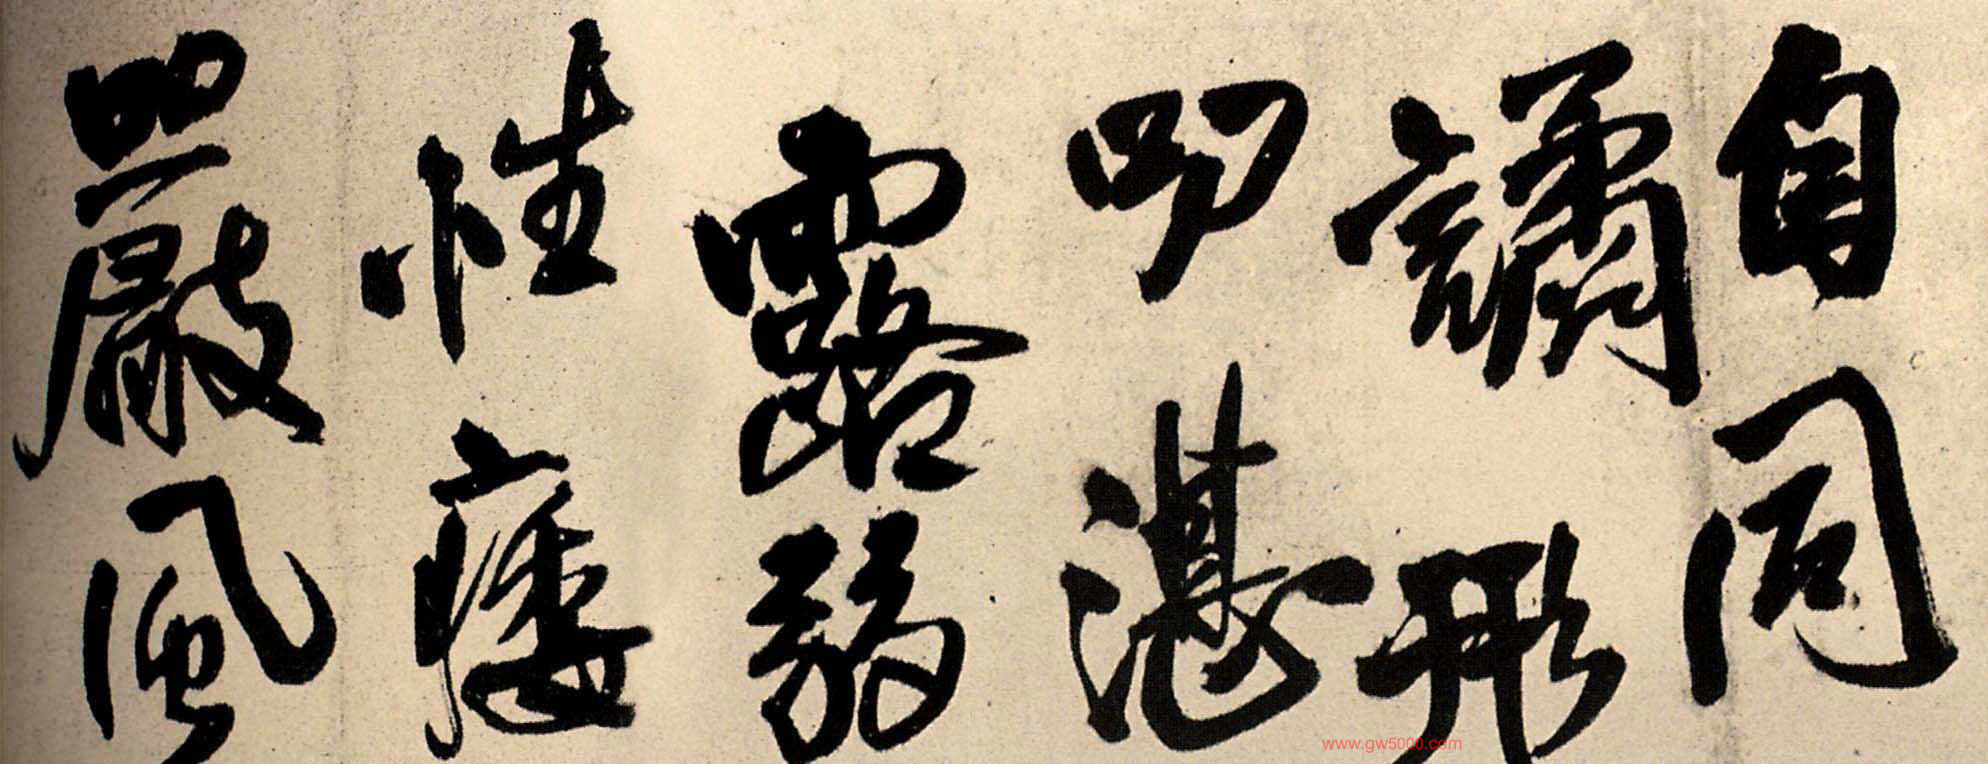 自同
譎形
叨湛
露弱
性痿
嚴風
www.gw5000.com